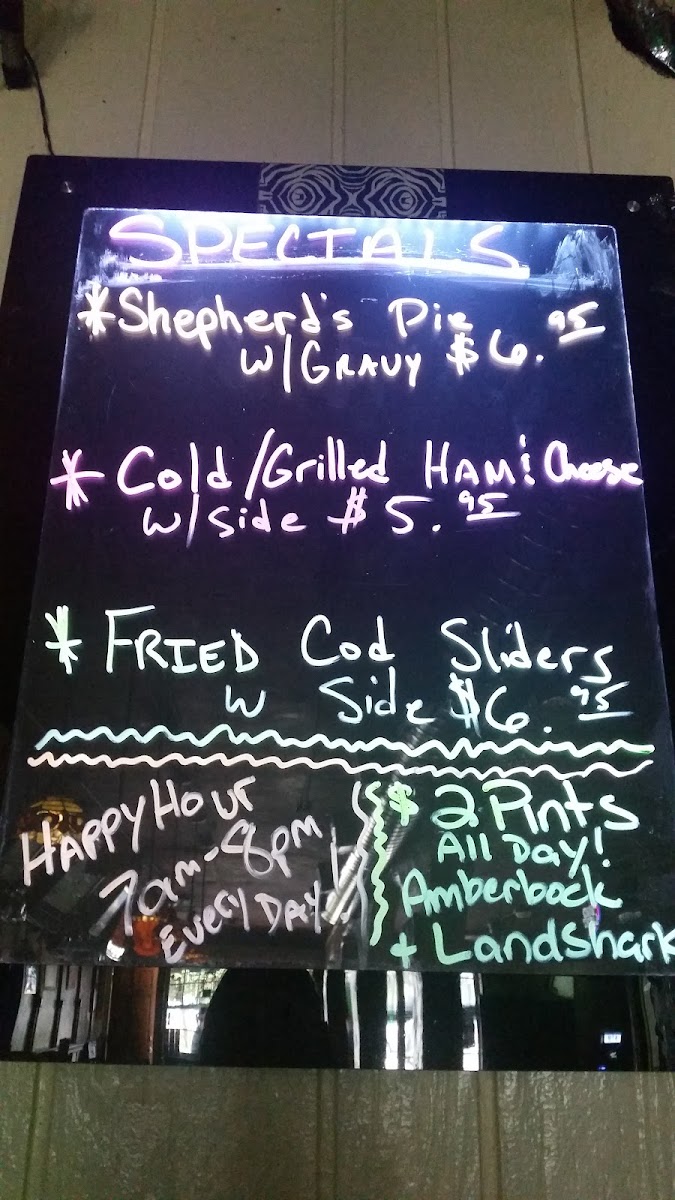 SPECIALS
* Shepherd's Pie
W/GRAVY $6.95
* Cold/Grilled HAM & Cheese
W/Side $5.95
* FRIED Cod Sliders
W Side $6.95
HAPPY HOUR
7am-8pm
EVERY DAY!
$2 Pints
All DAY!
Amberbock
+ Landshark